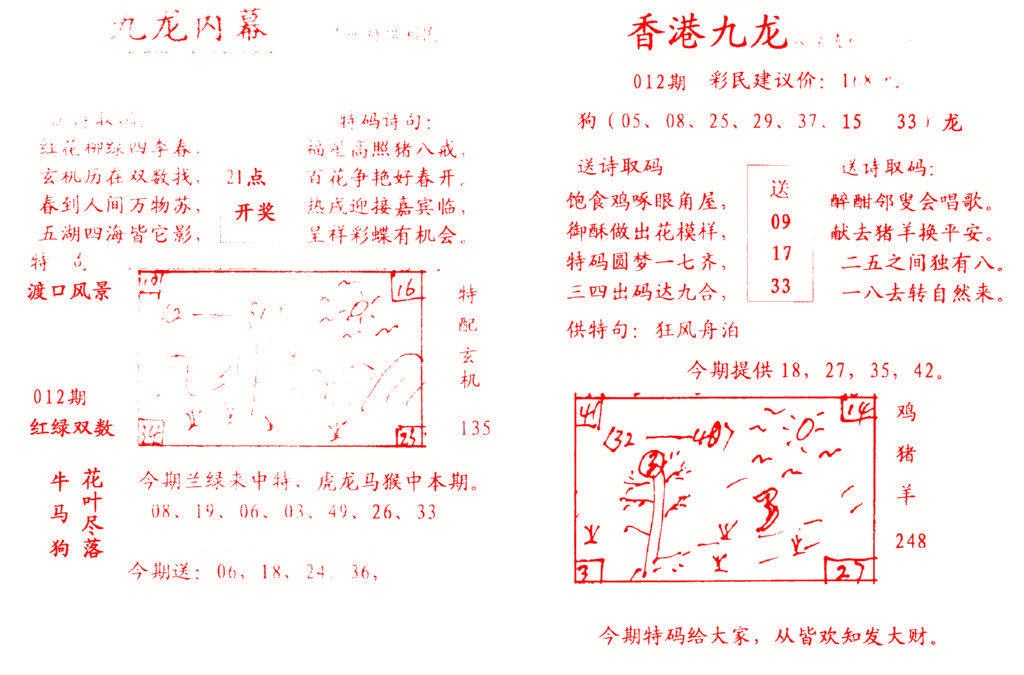 九龙内幕
特码诗句:
红花柳绿四季春,
玄机历在双数找,
春到人间万物苏,
五湖四海皆它影,
21点
开奖
福星高照猪八戒,
百花争艳好春开,
热戌迎接嘉宾临,
呈祥彩蝶有机会。
特 句
渡口风景
012期
红绿双数
16
23
特配玄机
135
牛马狗
花叶尽落
今期兰绿来中特、虎龙马猴中本期。
08、19、06、03、49、26、33
今期送: 06, 18, 24, 36,
香港九龙
012期 彩民建议价:
狗(05、08、25、29、37、15 33)龙
送诗取码
饱食鸡啄眼角屋,
御酥做出花模样,
特码圆梦一七齐,
三四出码达九合,
送
09
17
33
送诗取码:
醉酣邻叟会唱歌。
献去猪羊换平安。
二五之间独有八。
一八去转自然来。
供特句: 狂风舟泊
今期提供 18, 27, 35, 42。
41
14
32——40
3
27
鸡
猪
羊
248
今期特码给大家, 从皆欢知发大财。